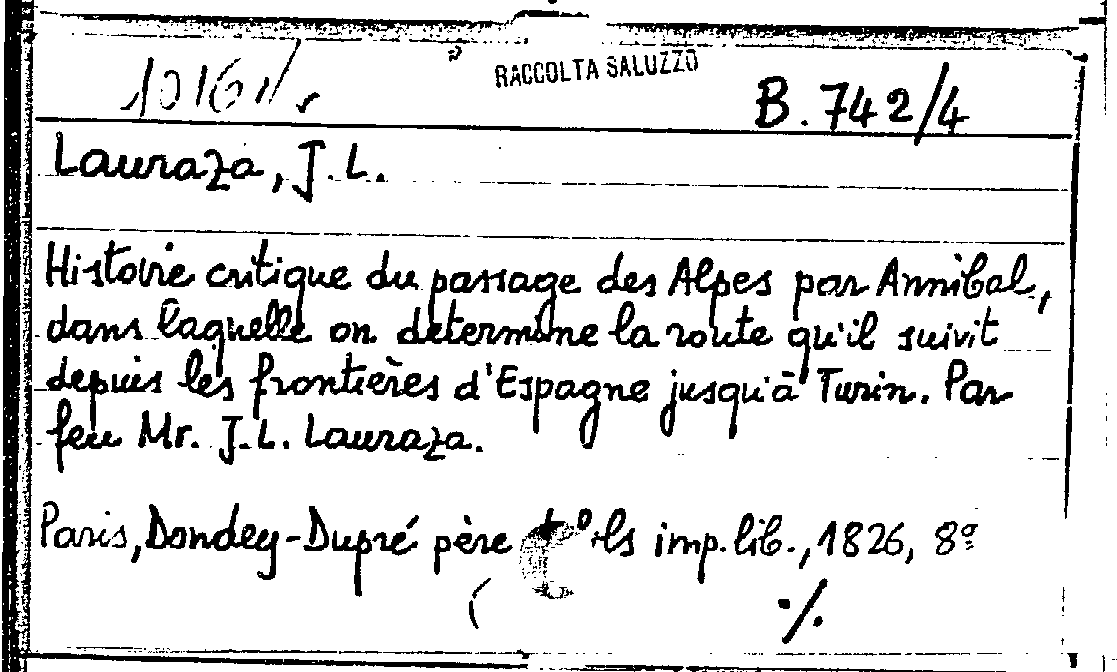 RACCOLTA SALUZZO
B. 742/4
Lauraza, J.L.
Histoire critique du passage des Alpes par Annibal,
dans laquelle on determine la route qu'il suivit
depuis les frontières d'Espagne jusqu'à Turin. Par
feu Mr. J.L. Lauraza.
Paris, Dondey-Dupré père et fils imp. lib., 1826, 8º
·/.